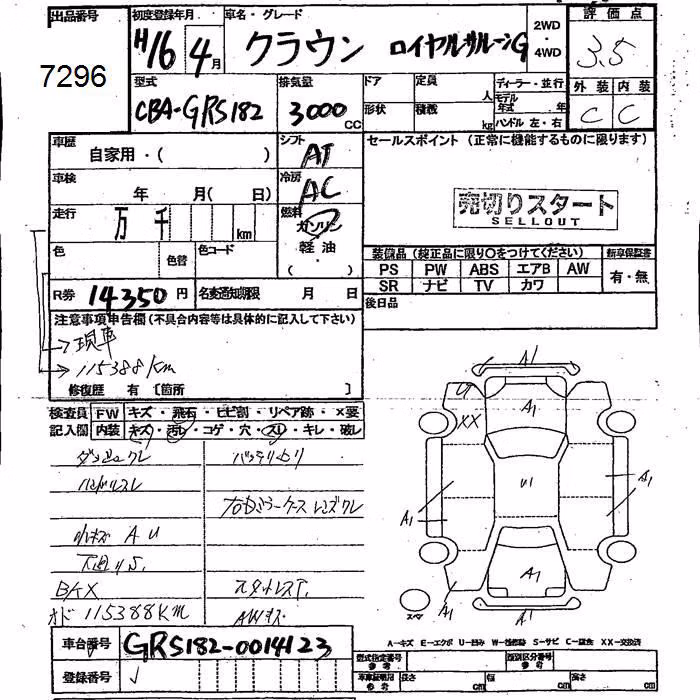 出品番号
7296
初度登録年月
H16 4月
車名・グレード
クラウン ロイヤルサルーンG
2WD
・
4WD
評価点
3.5
型式
CBA-GRS182
排気量
3000
CC
ドア
定員
人
形状
積載
kg
ディーラー・並行
モデル
年式 年
ハンドル 左・右
外装
内装
C
C
車歴
自家用・( )
シフト
AT
セールスポイント (正常に機能するものに限ります)
車検
年 月( 日)
冷房
AC
売切りスタート
SELLOUT
走行
万 千 km
燃料
ガソリン
・
軽油
( )
色
色替
色コード
装備品 (純正品に限り○をつけてください)
新車保証書
PS PW ABS エアB AW
SR ナビ TV カワ
有・無
R券 14350 円
名変通知期限 月 日
後日品
注意事項申告欄 (不具合内容等は具体的に記入して下さい)
→現車
→115388Km
修復歴 有 [箇所 ]
検査員
記入欄
FW キズ・飛石・ヒビ割・リペア跡・×要
内装 キズ・汚レ・コゲ・穴・スレ・キレ・破レ
ハンドルスレ
小キズ A U
オド 115388KM
A1
U
XX
A1
U1
A1
A1
A1
A1
A1
A1
スペア
車台番号
GRS182-0014123
登録番号
A-キズ E-エクボ U-凹み W-補修跡 S-サビ C-腐食 XX-交換済
型式指定番号
参考
類別区分番号
参考
車庫証明用
参考
長さ cm
幅 cm
高さ cm